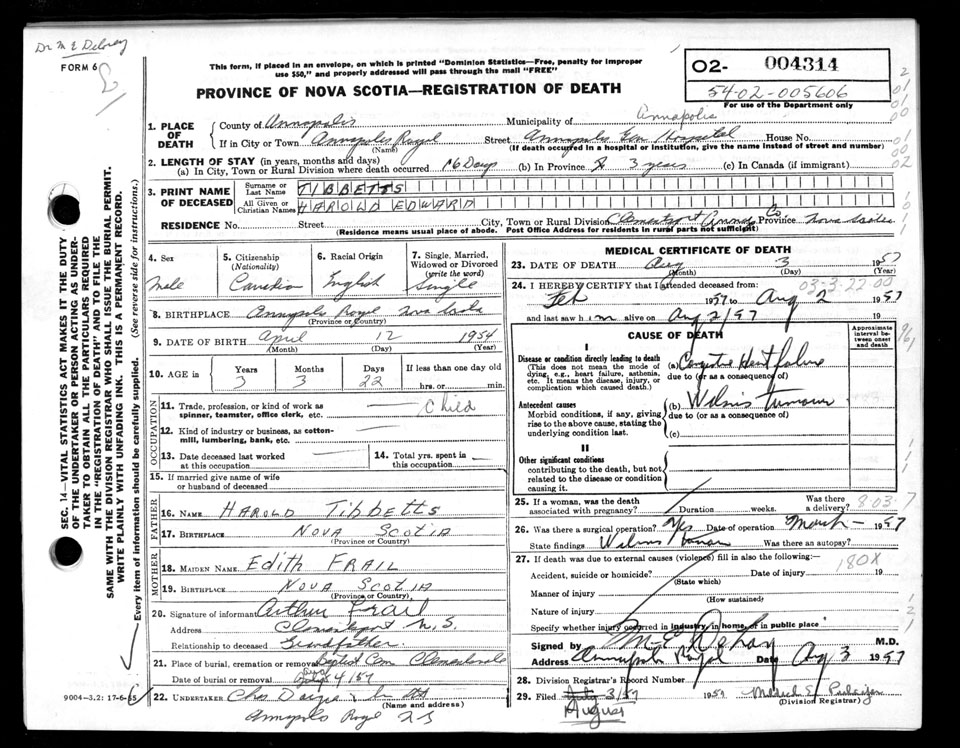 Dr M E
FORM 6
This form, if placed in an envelope, on which is printed "Dominion Statistics—Free, penalty for improper
use $50," and properly addressed will pass through the mail "FREE"
PROVINCE OF NOVA SCOTIA—REGISTRATION OF DEATH
O2- 004314
54-02-005606
For use of the Department only
SEC. 14—VITAL STATISTICS ACT MAKES IT THE DUTY
OF THE UNDERTAKER OR PERSON ACTING AS UNDER-
TAKER TO OBTAIN ALL THE PARTICULARS REQUIRED
IN THE "REGISTRATION OF DEATH" AND TO FILE THE
SAME WITH THE DIVISION REGISTRAR WHO SHALL ISSUE THE BURIAL PERMIT.
WRITE PLAINLY WITH UNFADING INK. THIS IS A PERMANENT RECORD.
Every item of information should be carefully supplied. (See reverse side for instructions.)
1. PLACE OF DEATH
County of Annapolis Municipality of Annapolis
If in City or Town Annapolis Royal Street Annapolis Gen Hospital House No.
(Name) (If death occurred in a hospital or institution, give the name instead of street and number)
2. LENGTH OF STAY (in years, months and days)
(a) In City, Town or Rural Division where death occurred 16 Days (b) In Province 3 years (c) In Canada (if immigrant)
3. PRINT NAME OF DECEASED
Surname or Last Name TIBBETTS
All Given or Christian Names HAROLD EDWARD
RESIDENCE No. Street City, Town or Rural Division Clementsport Annap Co Province Nova Scotia
(Residence means usual place of abode. Post Office Address for residents in rural parts not sufficient)
4. Sex Male
5. Citizenship (Nationality) Canadian
6. Racial Origin English
7. Single, Married, Widowed or Divorced (write the word) Single
8. BIRTHPLACE Annapolis Royal Nova Scotia
(Province or Country)
9. DATE OF BIRTH April 12 1954
(Month) (Day) (Year)
10. AGE in Years 3 Months 3 Days 22 If less than one day old hrs. or min.
OCCUPATION
11. Trade, profession, or kind of work as spinner, teamster, office clerk, etc. Child
12. Kind of industry or business, as cotton-mill, lumbering, bank, etc.
13. Date deceased last worked at this occupation
14. Total yrs. spent in this occupation
15. If married give name of wife or husband of deceased
FATHER
16. NAME HAROLD TIBBETTS
17. BIRTHPLACE NOVA SCOTIA
(Province or Country)
MOTHER
18. MAIDEN NAME EDITH FRAIL
19. BIRTHPLACE NOVA SCOTIA
(Province or Country)
20. Signature of informant Arthur Frail
Address Clementsport N.S.
Relationship to deceased Grandfather
21. Place of burial, cremation or removal Baptist Cem Clementsvale
Date of burial or removal Aug 4/57
22. UNDERTAKER Chas
(Name and address)
Annapolis Royal N S
9004-3.2: 17-6-55
MEDICAL CERTIFICATE OF DEATH
23. DATE OF DEATH Aug 3 1957
(Month) (Day) (Year)
03-3-22 00
24. I HEREBY CERTIFY that I attended deceased from:
Feb 1957 to Aug 2 1957
and last saw him alive on Aug 2/57 19
CAUSE OF DEATH
Approximate interval between onset and death
I
Disease or condition directly leading to death
(This does not mean the mode of dying, e.g., heart failure, asthenia, etc. It means the disease, injury, or complication which caused death.)
(a) Congestive Heart failure
due to (or as a consequence of)
Antecedent causes
Morbid conditions, if any, giving rise to the above cause, stating the underlying condition last.
(b) Wilms tumour
due to (or as a consequence of)
(c)
II
Other significant conditions
contributing to the death, but not related to the disease or condition causing it.
25. If a woman, was the death associated with pregnancy? Duration weeks. Was there a delivery?
8-03-7
26. Was there a surgical operation? Yes Date of operation March 1957
State findings Wilms tumour Was there an autopsy?
27. If death was due to external causes (violence) fill in also the following:—
180X
Accident, suicide or homicide? Date of injury 19
(State which)
Manner of injury
(How sustained)
Nature of injury
Specify whether injury occurred in industry, in home, or in public place
Signed by M.D.
Address Annapolis Royal Date Aug 3 1957
28. Division Registrar's Record Number
29. Filed 3/57 1957
August
(Division Registrar)